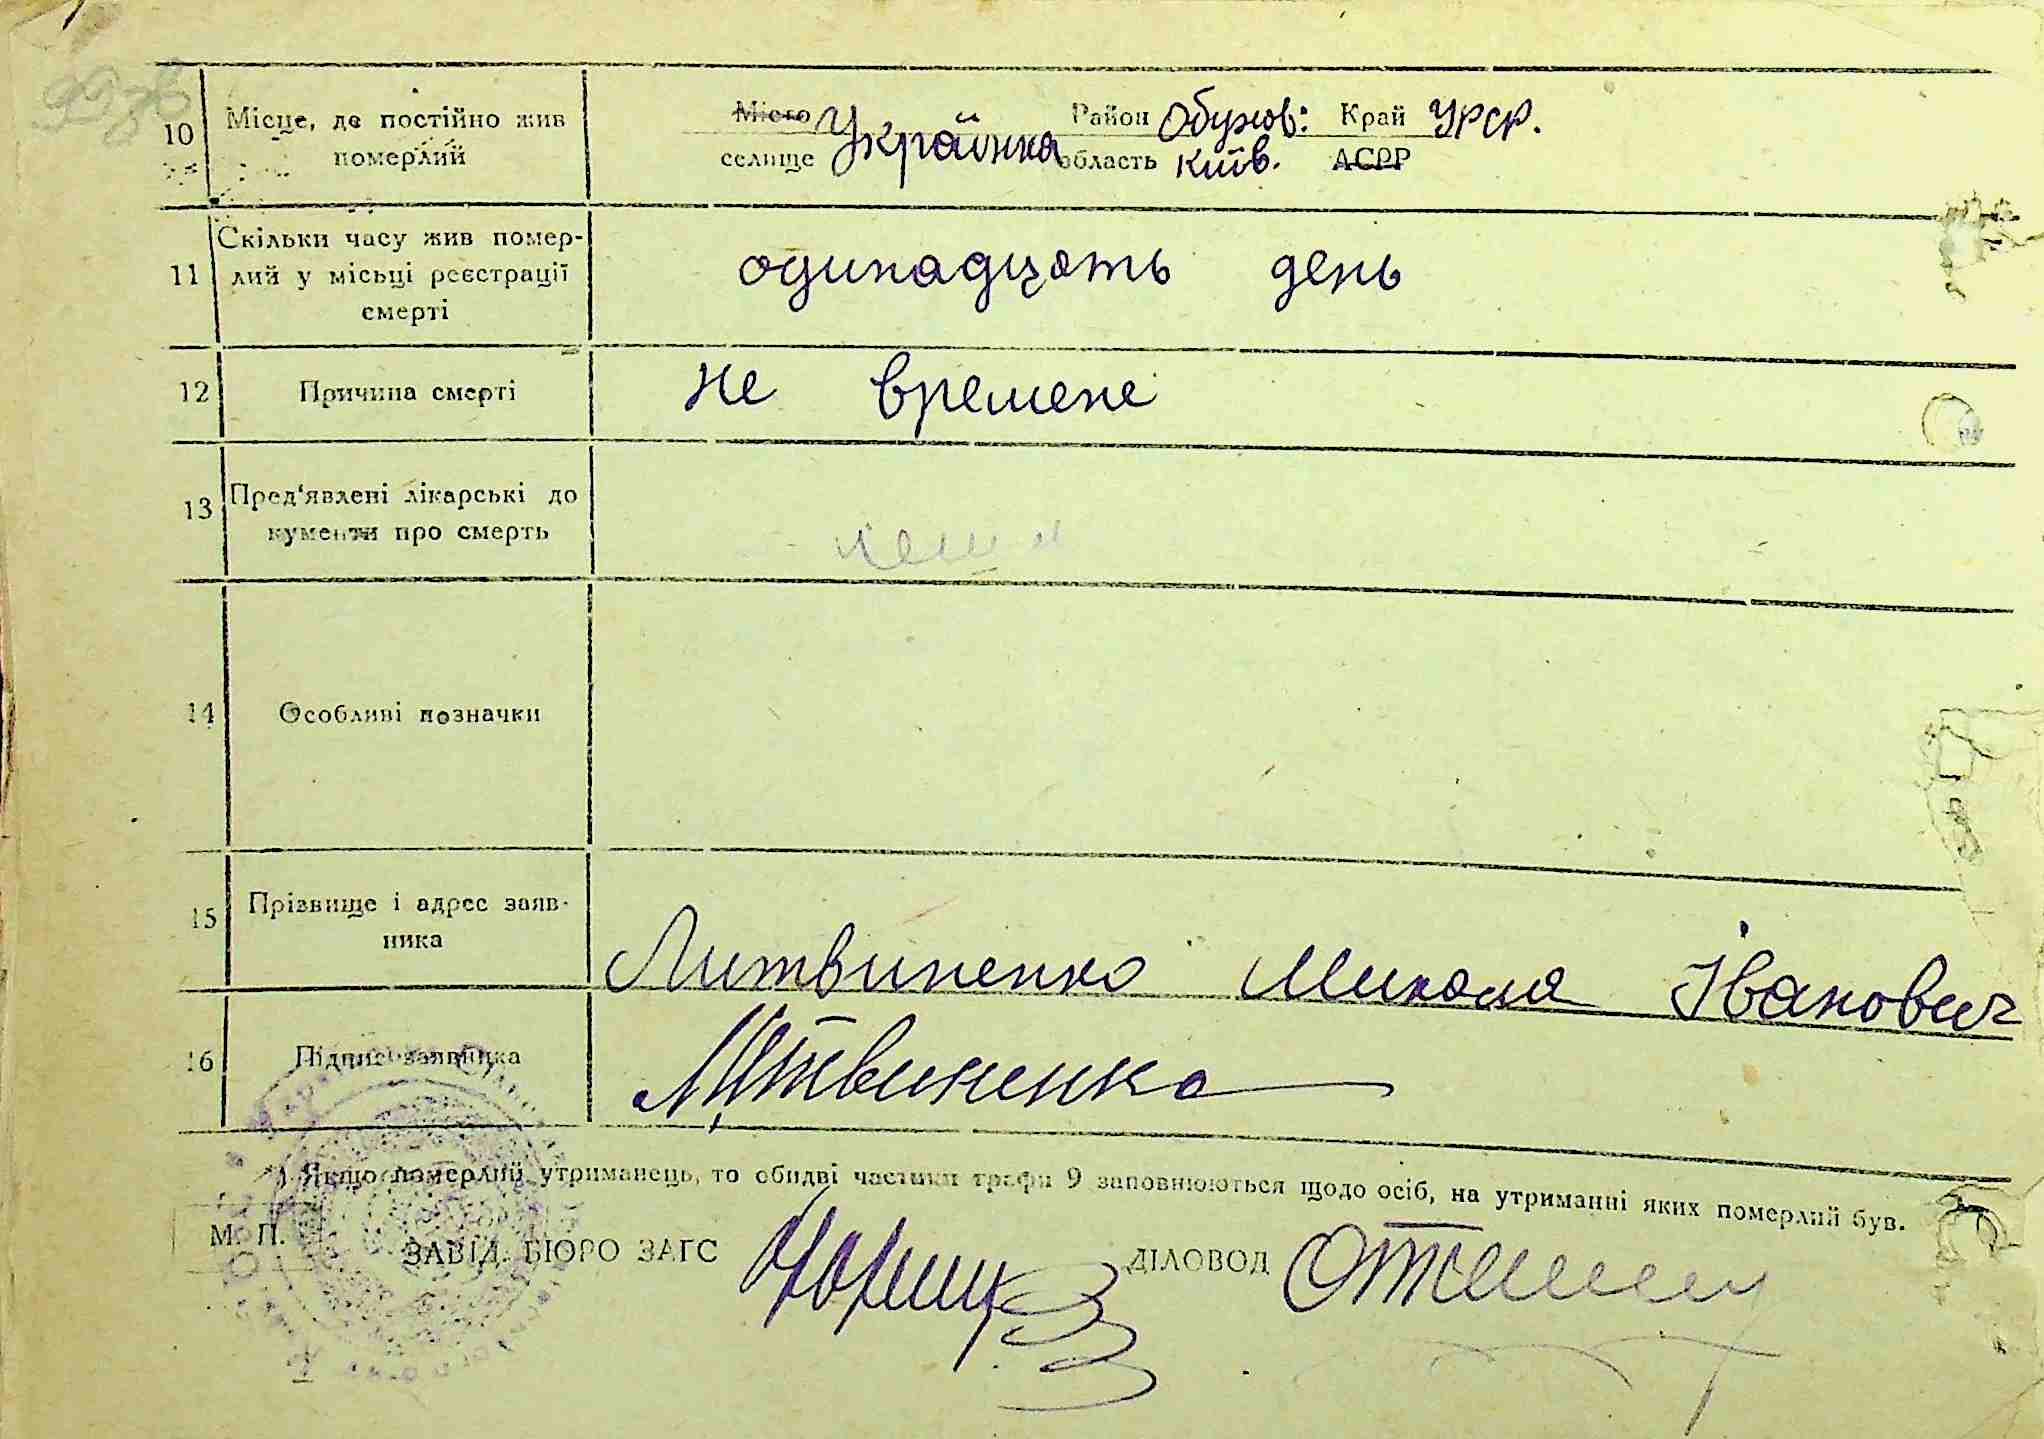 10 Місце, де постійно жив Місто Українка Район Обухов: Край УРСР.
померлий селище область Київ. АСРР
Скільки часу жив помер-
11 лий у місьці реєстрації одинадцять день
смерті
12 Причина смерті не времене
13 Пред'явлені лікарські до
кументи про смерть
14 Особливі позначки
15 Прізвище і адрес заяв-
ника Литвиненко Микола Іванович
16 Підпис заявника Литвиненко
*) Якщо померлий утриманець, то обидві частини графи 9 заповнюються щодо осіб, на утриманні яких померлий був.
М. П. ЗАВІД. БЮРО ЗАГС ДІЛОВОД